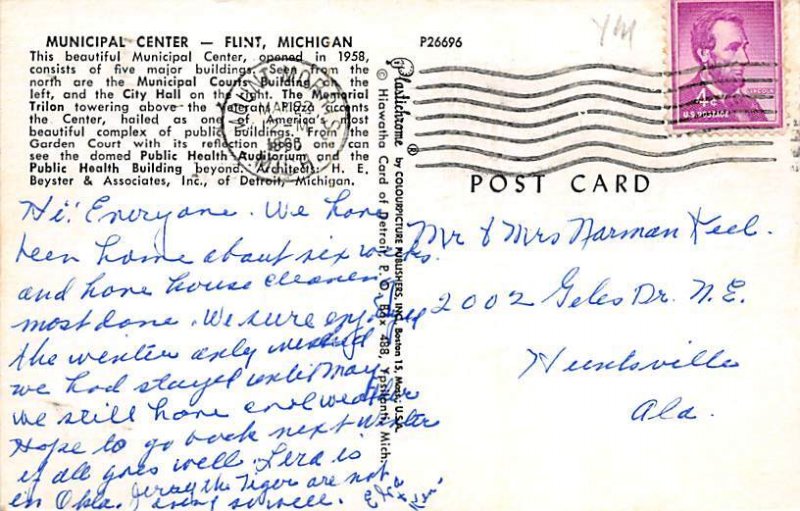 MUNICIPAL CENTER — FLINT, MICHIGAN
This beautiful Municipal Center, opened in 1958,
consists of five major buildings. Seen from the
north are the Municipal Courts Building on the
left, and the City Hall on the right. The Memorial
Trilon towering above the Veterans Plaza accents
the Center, hailed as one of America's most
beautiful complex of public buildings. From the
Garden Court with its reflection pool one can
see the domed Public Health Auditorium and the
Public Health Building beyond. Architect: H. E.
Beyster & Associates, Inc., of Detroit, Michigan.
Hi! Everyone. We have
been home about six weeks.
and have house cleanen
most done. We sure enjoyed
the winter only
we had stayed until May
we still have cool weather
Hope to go back next winter
if all goes well. is
in Okla. Jerry the Tiger are not
doing so well.
Plastichrome ® by COLOURPICTURE PUBLISHERS, INC., Boston 15, Mass., U.S.A.
© Hiawatha Card of Detroit, P. O. Box 488, Ypsilanti, Mich.
P26696
YM
MOUNT MORRIS
1960
4c
U.S. POSTAGE
LINCOLN
POST CARD
Mr & Mrs Norman Keel.
2002 Geles Dr. N.E.
Huntsville
Ala.